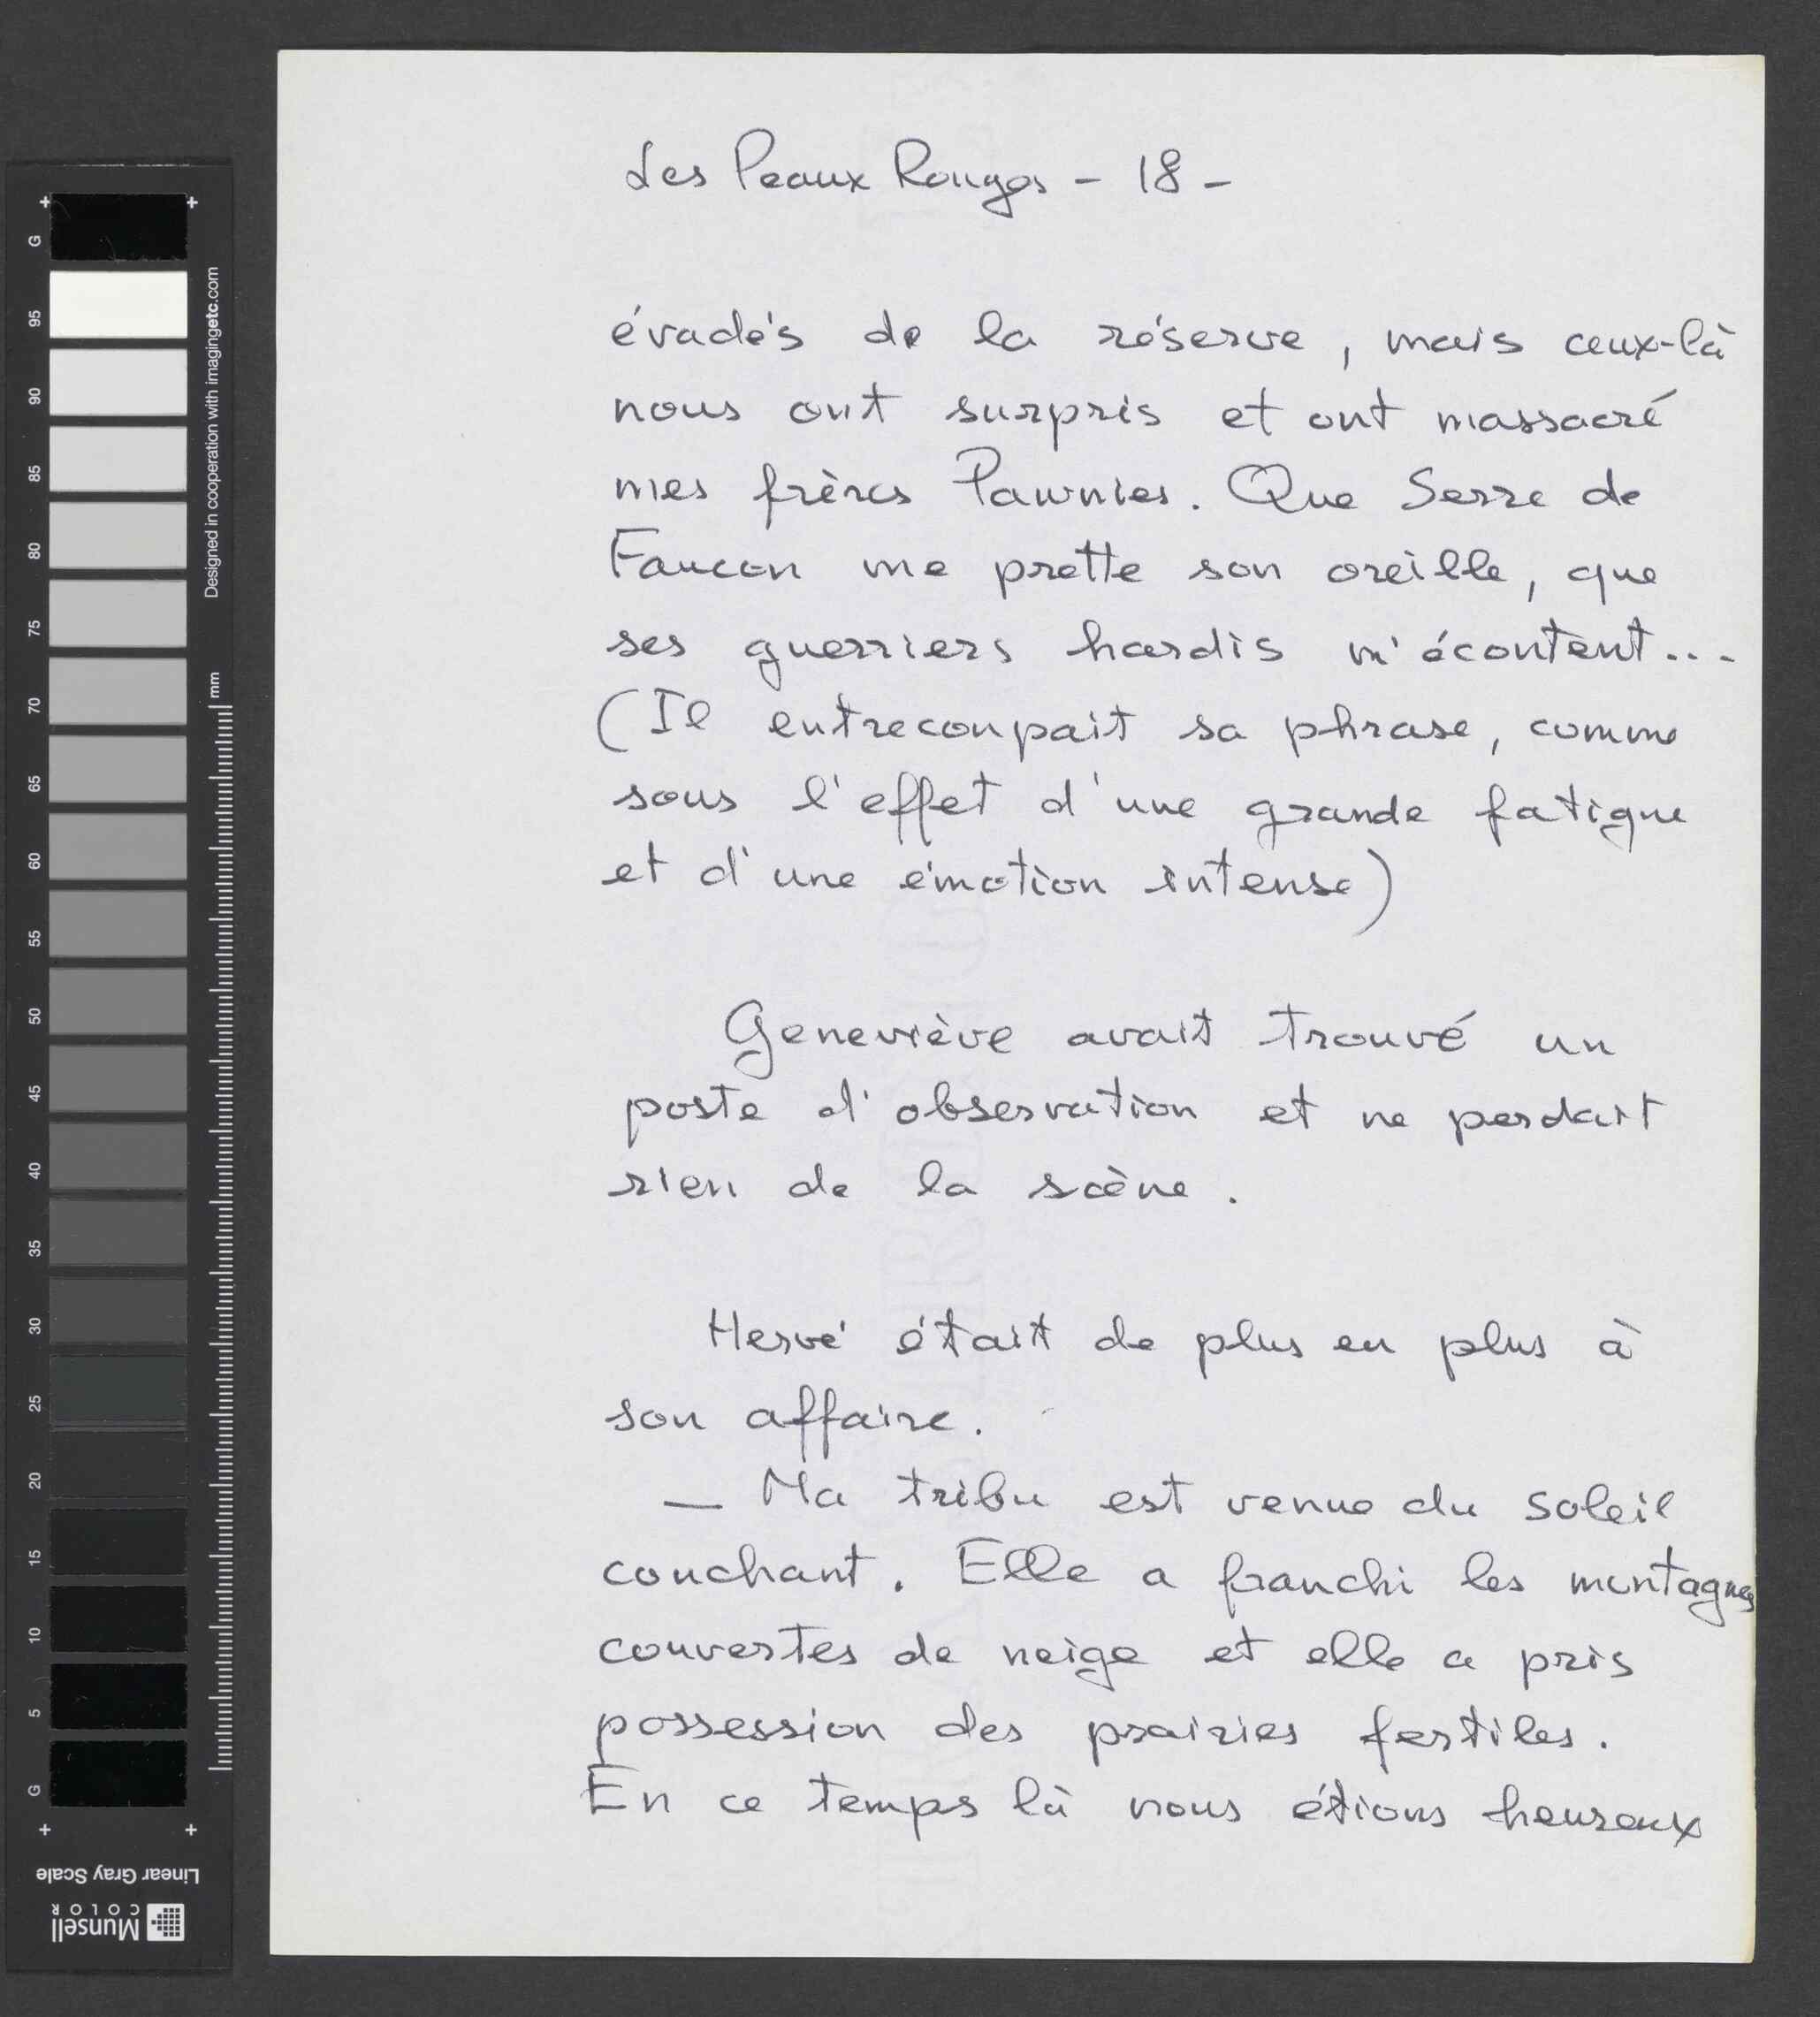 Les Peaux Rouges - 18 -
évadés de la réserve, mais ceux-là
nous ont surpris et ont massacré
mes frères Pawnies. Que Serre de
Faucon me prette son oreille, que
ses guerriers hardis m'écoutent...
(Il entrecoupait sa phrase, comme
sous l'effet d'une grande fatigue
et d'une émotion intense)
Geneviève avait trouvé un
poste d'observation et ne perdait
rien de la scène.
Hervé était de plus en plus à
son affaire.
— Ma tribu est venue du soleil
couchant. Elle a franchi les montagnes
couvertes de neige et elle a pris
possession des prairies fertiles.
En ce temps là nous étions heureux
G
95
90
85
80
75
70
65
60
55
50
45
40
35
30
25
20
15
10
5
G
Designed in cooperation with imagingetc.com
mm
Linear Gray Scale
Munsell
COLOR